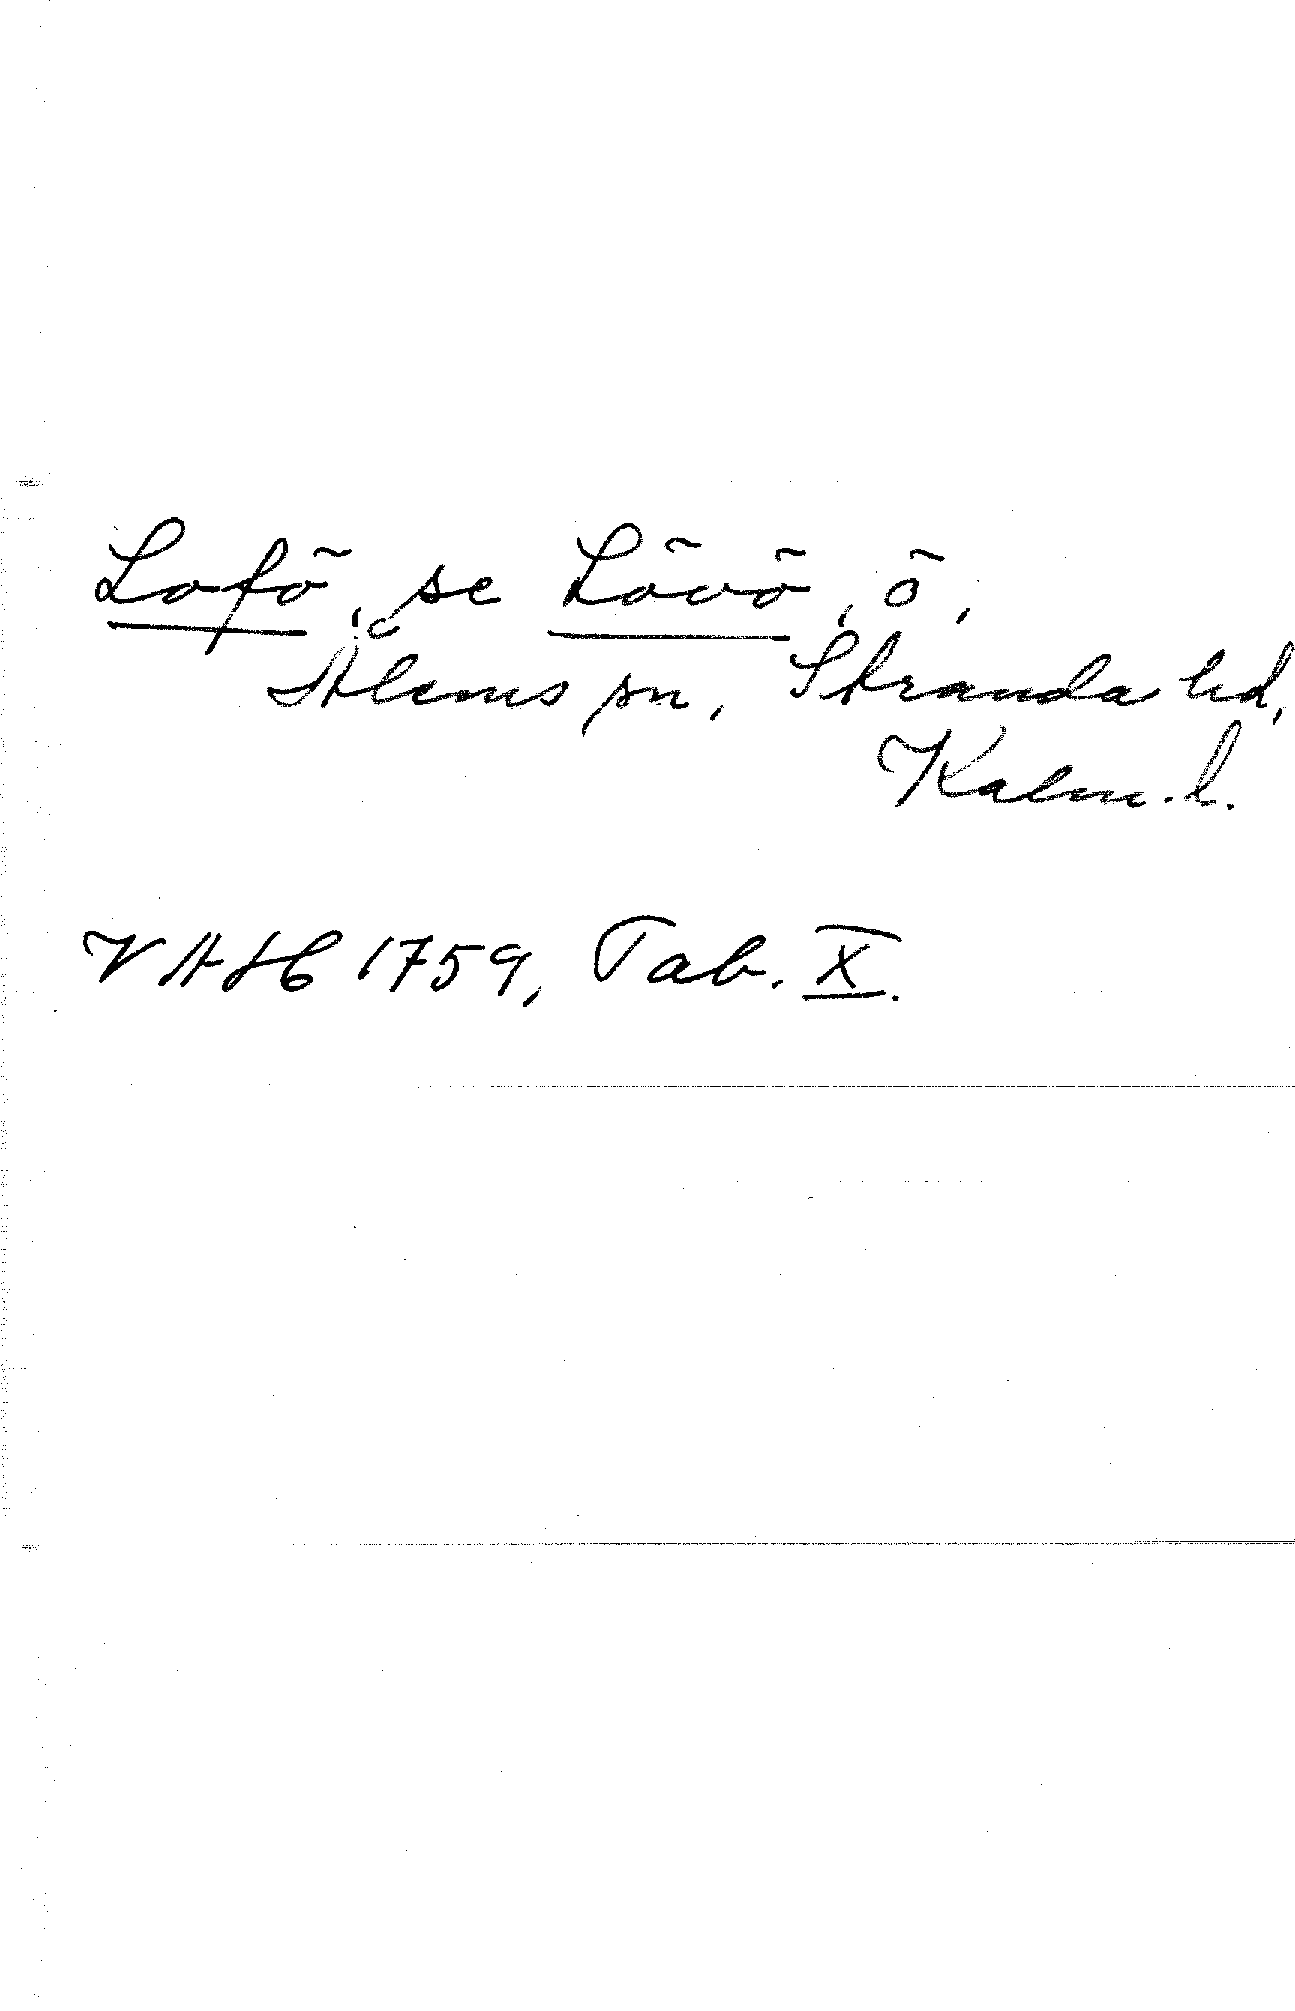 Lofö, se Lövö, ö,
Ålems sn, Stranda hd,
Kalm. l.
VAH 1759, Tab. X.